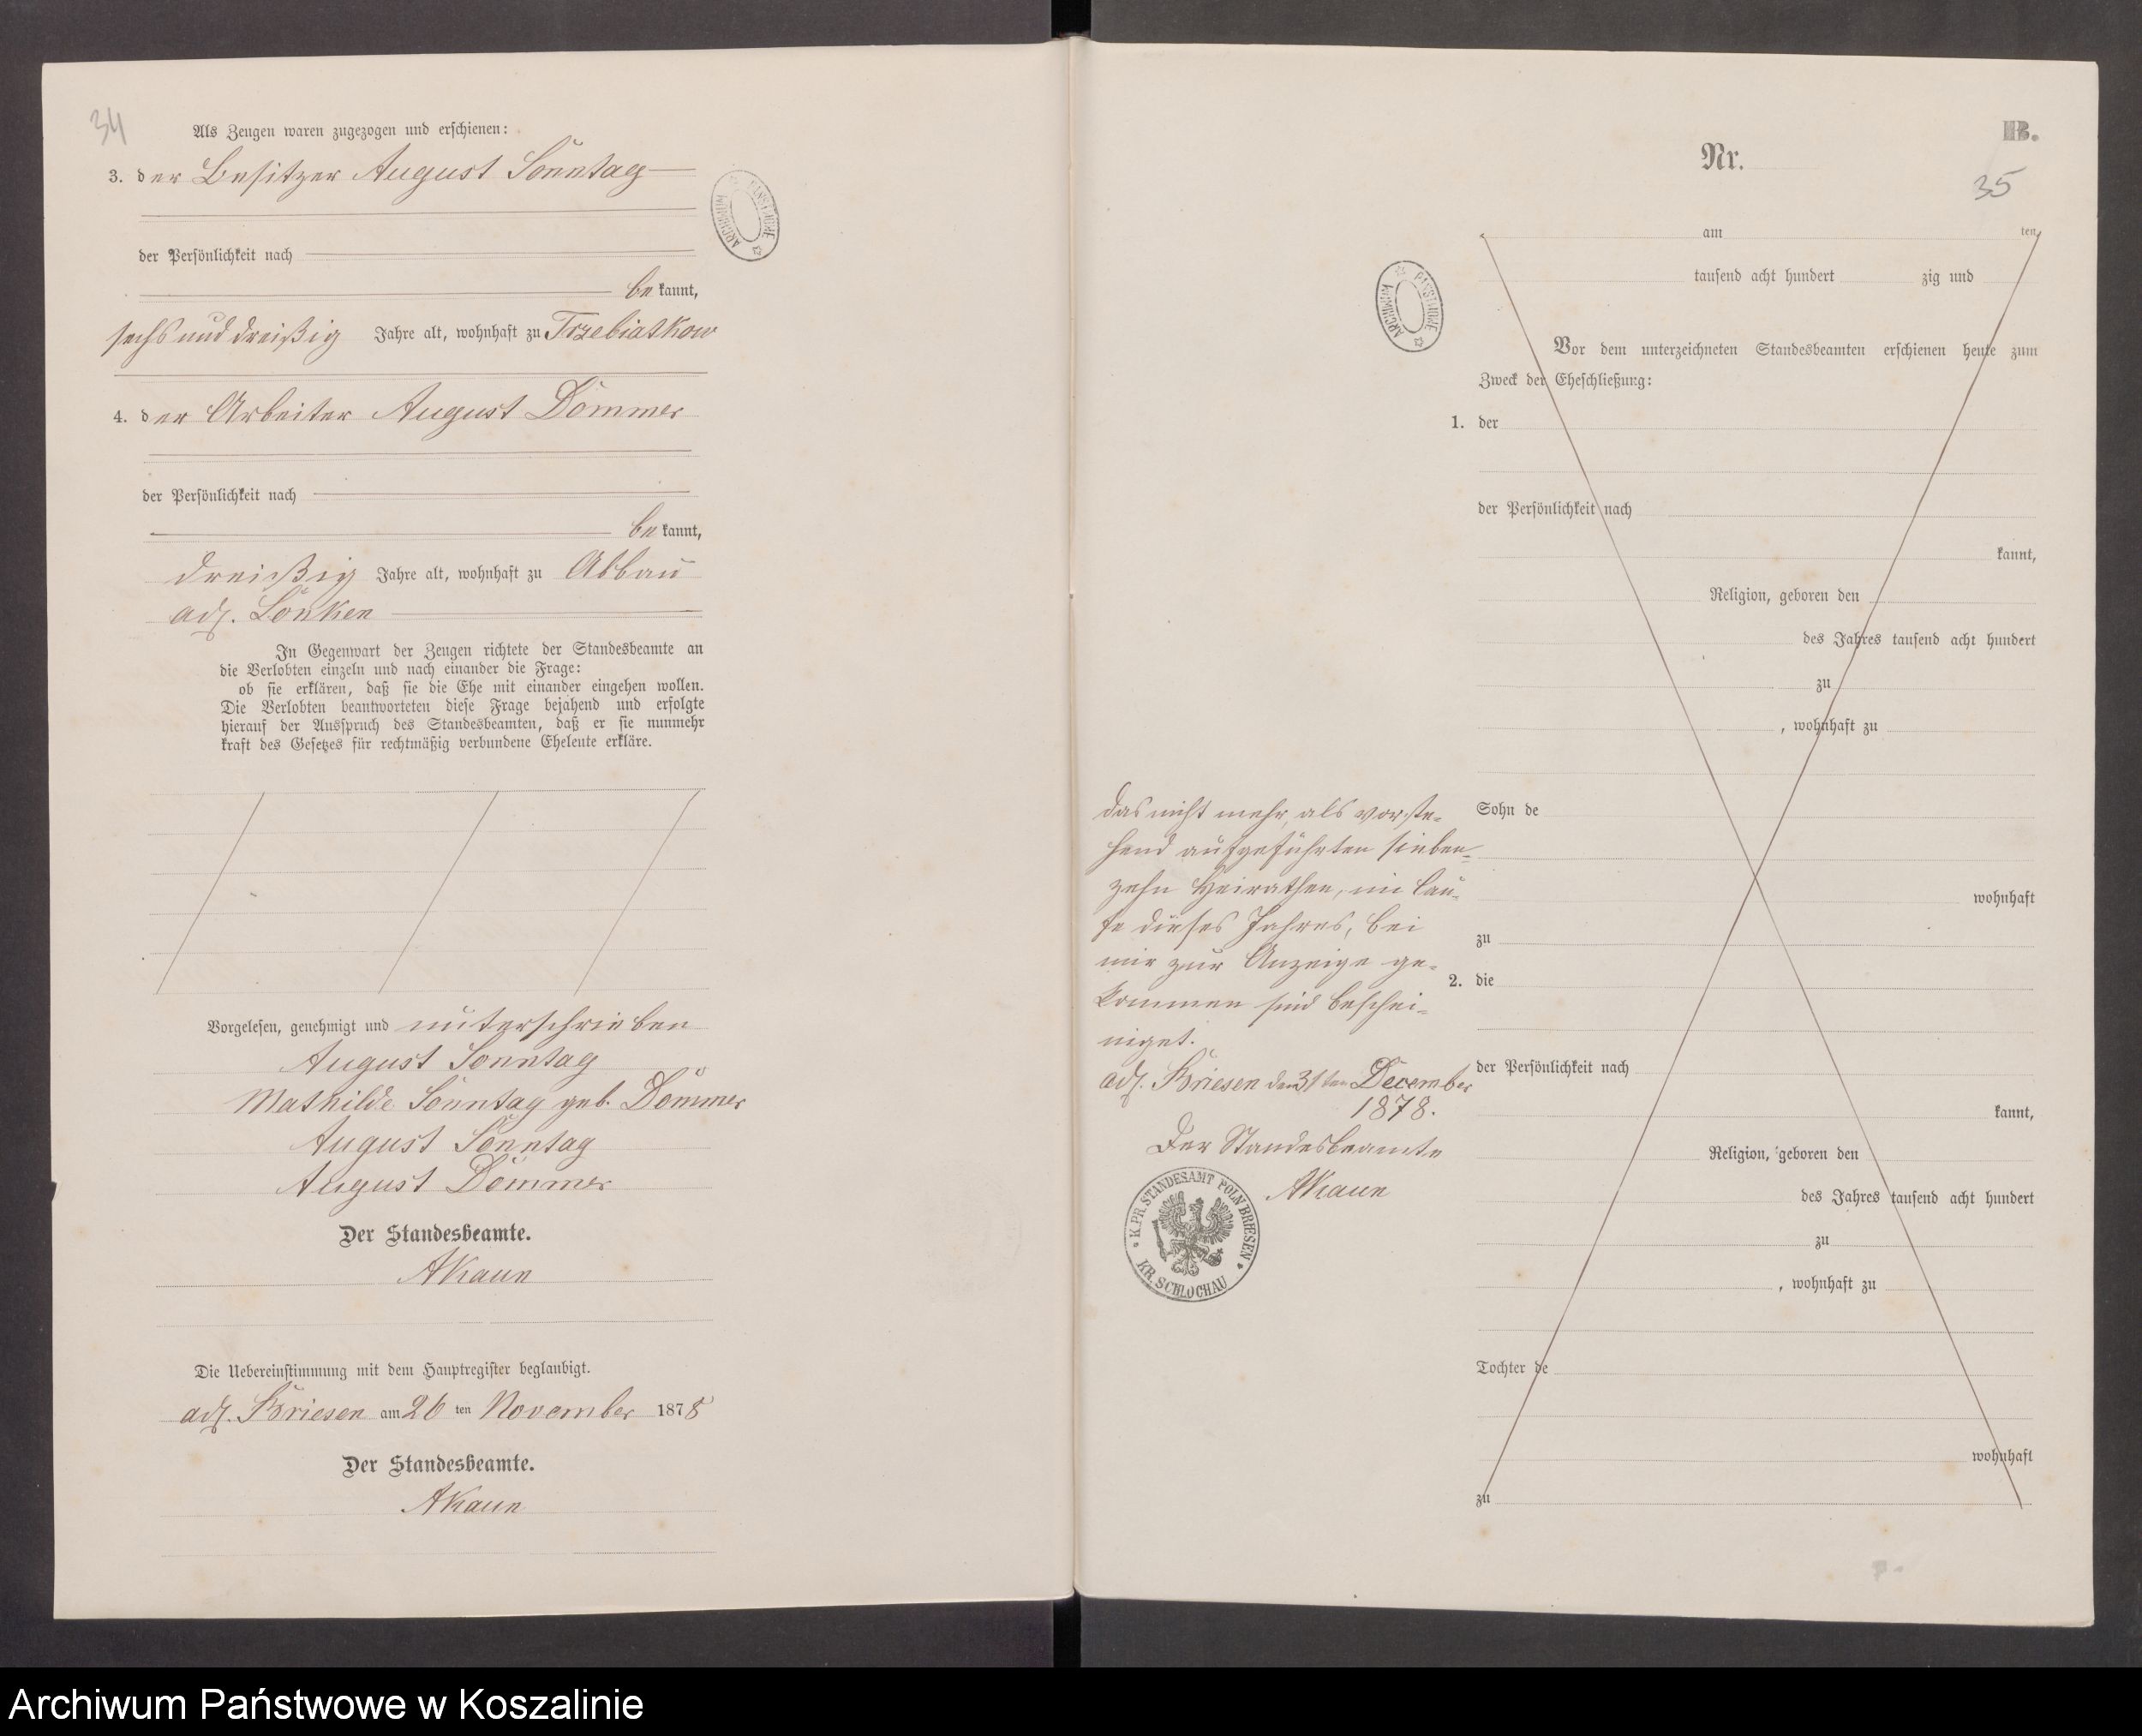 34
Als Zeugen waren zugezogen und erschienen:
3. der Besitzer August Sonntag
der Persönlichkeit nach
be kannt,
sechs und dreißig Jahre alt, wohnhaft zu Trzebiatkow
4. der Arbeiter August Dommer
der Persönlichkeit nach
be kannt,
dreißig Jahre alt, wohnhaft zu Abbau
adl. Lonken
In Gegenwart der Zeugen richtete der Standesbeamte an
die Verlobten einzeln und nach einander die Frage:
ob sie erklären, daß sie die Ehe mit einander eingehen wollen.
Die Verlobten beantworteten diese Frage bejahend und erfolgte
hierauf der Ausspruch des Standesbeamten, daß er sie nunmehr
kraft des Gesetzes für rechtmäßig verbundene Eheleute erkläre.
Vorgelesen, genehmigt und unterschrieben
August Sonntag
Mathilde Sonntag geb. Dommer
August Sonntag
August Dommer
Der Standesbeamte.
AKaun
Die Uebereinstimmung mit dem Hauptregister beglaubigt.
adl. Briesen am 26 ten November 1878
Der Standesbeamte.
AKaun
ARCHIWUM PAŃSTWOWE
B.
Nr.
35
am ten
tausend acht hundert zig und
ARCHIWUM PAŃSTWOWE
Vor dem unterzeichneten Standesbeamten erschienen heute zum
Zweck der Eheschließung:
1. der
der Persönlichkeit nach
kannt,
Religion, geboren den
des Jahres tausend acht hundert
zu
, wohnhaft zu
Sohn de
wohnhaft
zu
2. die
der Persönlichkeit nach
kannt,
Religion, geboren den
des Jahres tausend acht hundert
zu
, wohnhaft zu
Tochter de
wohnhaft
zu
Das nicht mehr, als vorste-
hend aufgeführten sieben-
zehn Heirathen, im Lau-
fe dieses Jahres, bei
mir zur Anzeige ge-
kommen sind beschei-
niget.
adl. Briesen den 31ten December
1878.
Der Standesbeamte
AKaun
K. PR. STANDESAMT POLN BRIESEN
KR. SCHLOCHAU
Archiwum Państwowe w Koszalinie